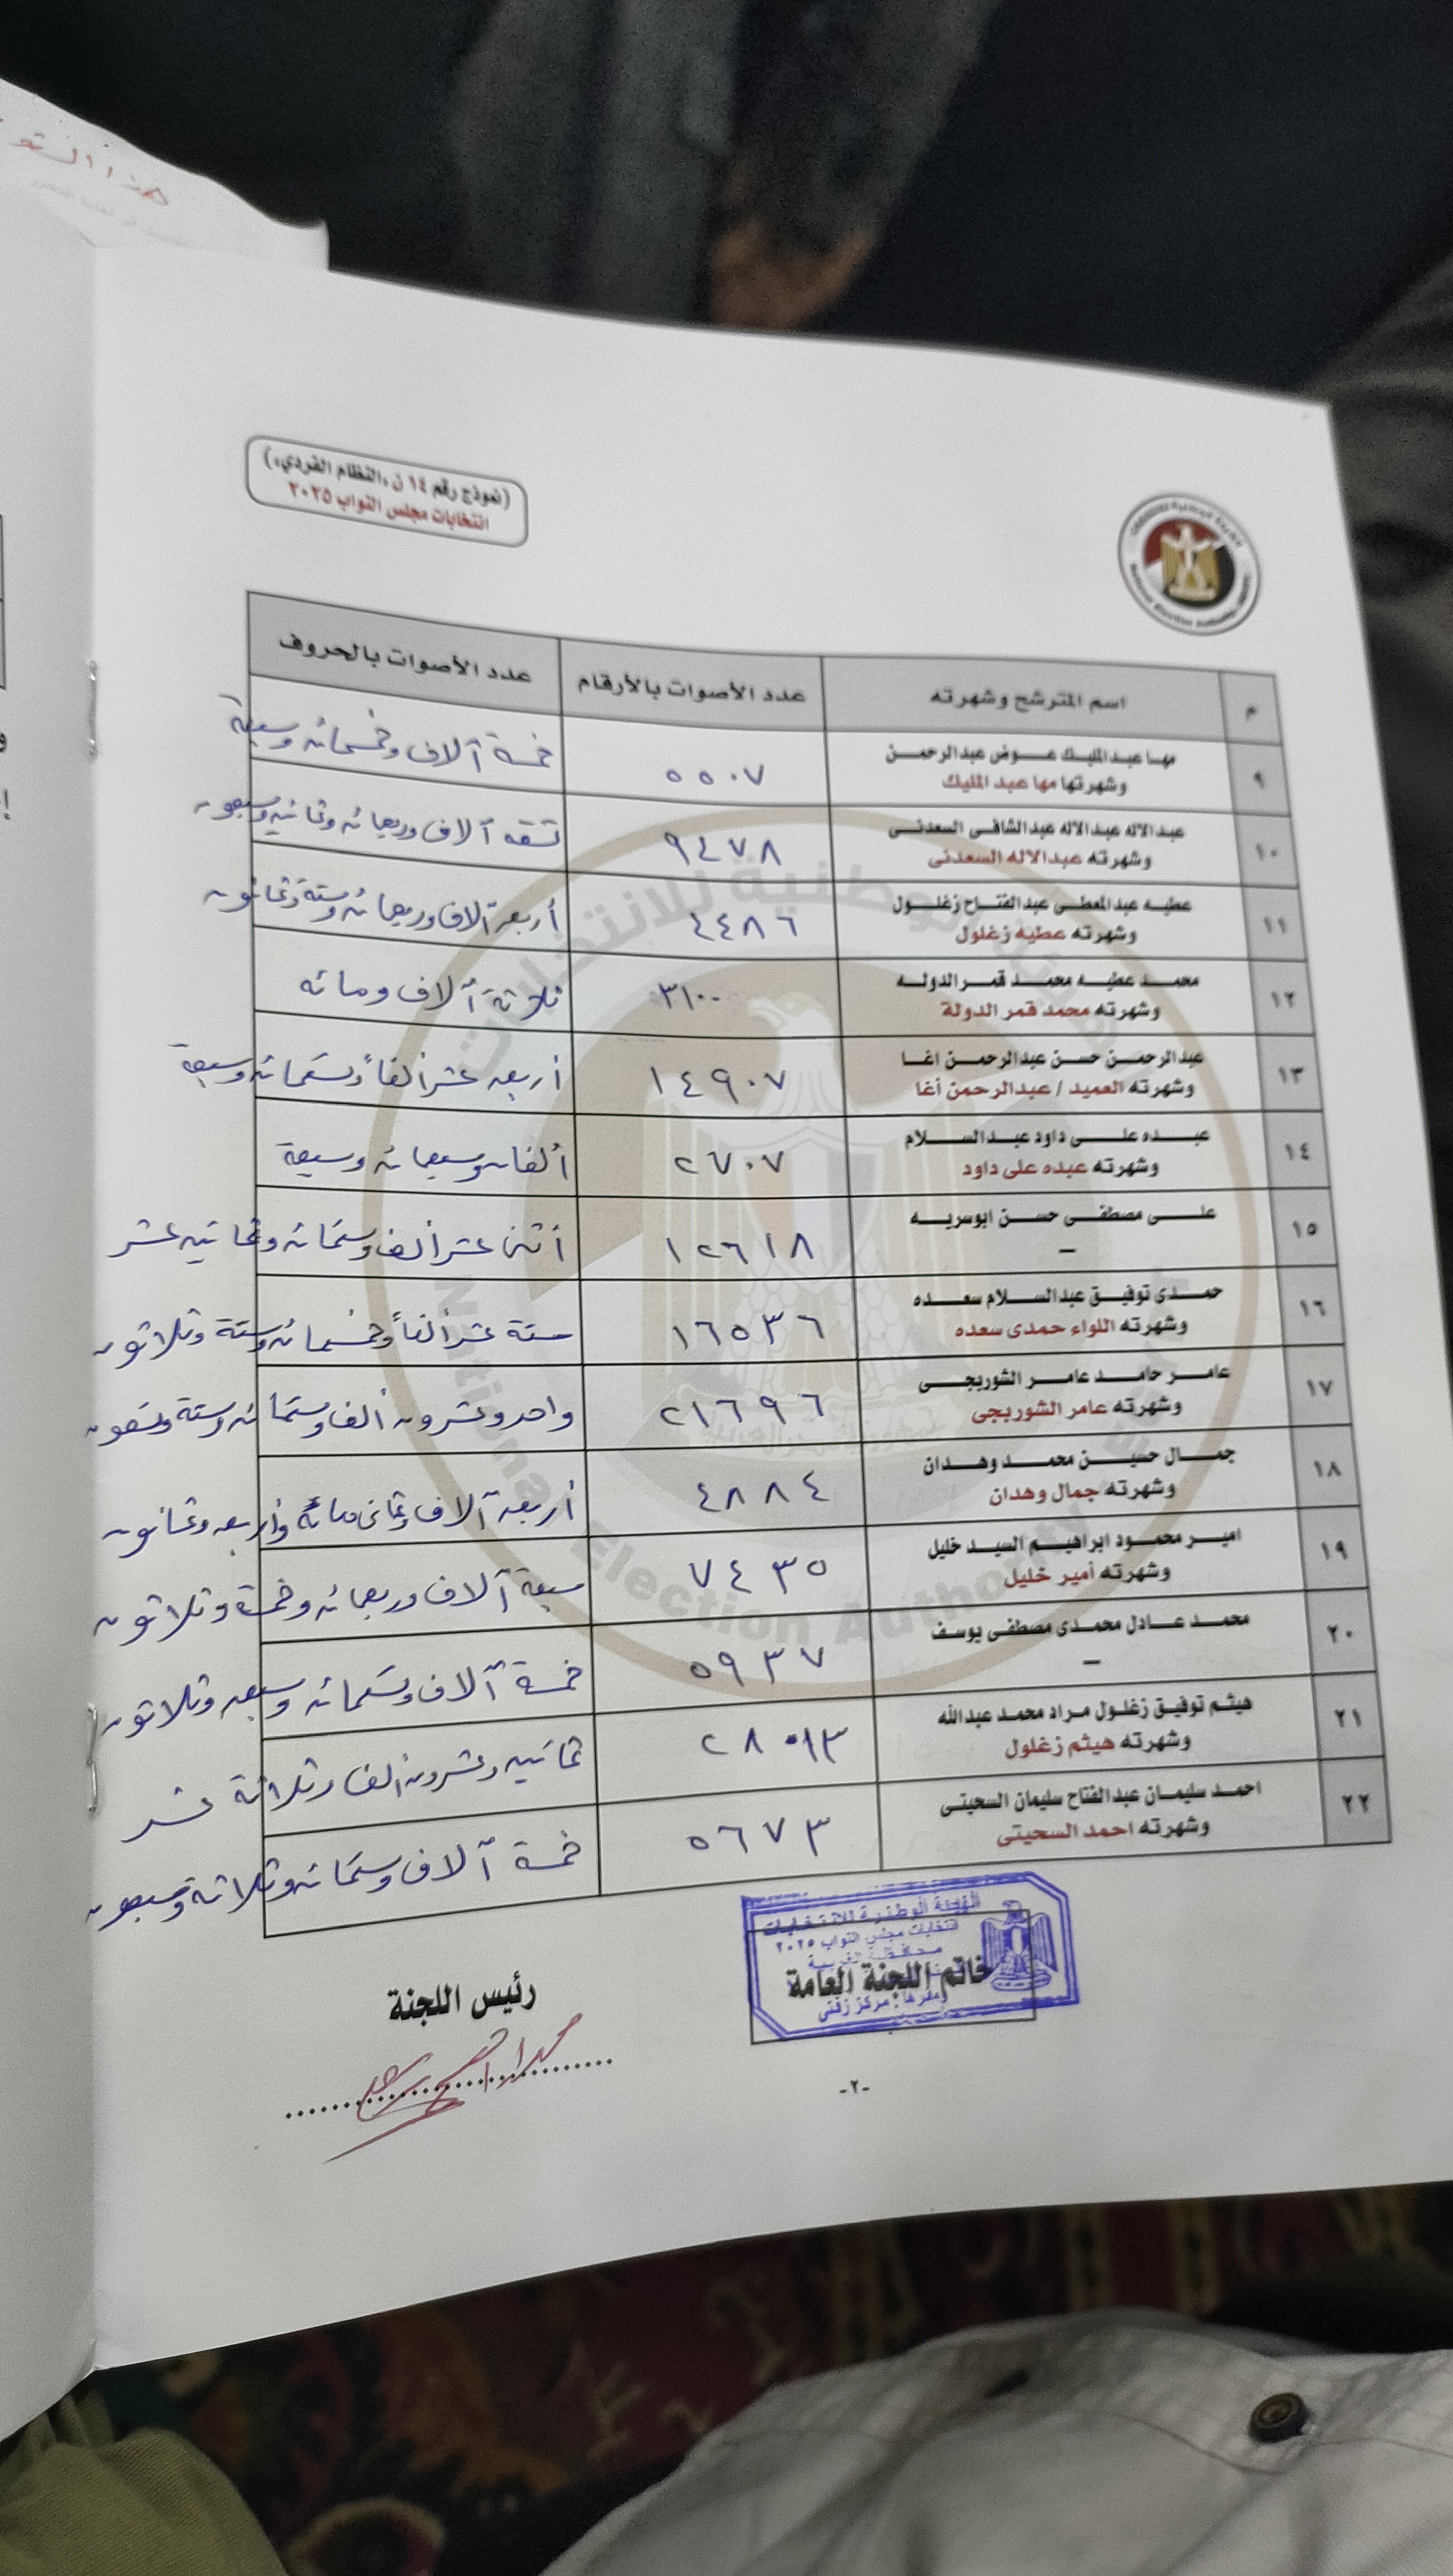 (نموذج رقم ١٤ ن «النظام الفردي»)
انتخابات مجلس النواب ٢٠٢٥
م اسم المترشح وشهرته عدد الأصوات بالأرقام عدد الأصوات بالحروف
٩ مها عبد المليك عوض عبدالرحمن ٥٥٠٧ خمسة آلاف وخمسمائه وسبعة
وشهرتها مها عبد المليك
١٠ عبدالاله عبدالاله عبدالشافى السعدنى ٩٤٧٨ تسعه آلاف وربعمائه وثمانيه وسبعون
وشهرته عبدالاله السعدنى
١١ عطيه عبدالمعطى عبدالفتاح زغلول ٤٤٨٦ أربعة آلاف وربعمائه وستة وثمانون
وشهرته عطيه زغلول
١٢ محمد عطيه محمد قمرالدوله ٣١٠٠ ثلاثة آلاف ومائه
وشهرته محمد قمر الدولة
١٣ عبدالرحمن حسن عبدالرحمن اغا ١٤٩٠٧ أربعه عشر ألفاً وتسعمائه وسبعة
وشهرته العميد / عبدالرحمن أغا
١٤ عبده على داود عبدالسلام ٢٧٠٧ ألفان وسبعمائه وسبعة
وشهرته عبده على داود
١٥ على مصطفى حسن ابوسريه ١٢٦١٨ أثنى عشر ألف وستمائه وثمانيه عشر
–
١٦ حمدى توفيق عبدالسلام سعده ١٦٥٣٦ ستة عشر ألفاً وخمسمائه وستة وثلاثون
وشهرته اللواء حمدى سعده
١٧ عامر حامد عامر الشوربجى ٢١٦٩٦ واحد وعشرون ألف وستمائه وستة وتسعون
وشهرته عامر الشوربجى
١٨ جمال حسين محمد وهدان ٤٨٨٤ أربعه آلاف وثمانى مائة وأربعه وثمانون
وشهرته جمال وهدان
١٩ امير محمود ابراهيم السيد خليل ٧٤٣٥ سبعة آلاف وربعمائه وخمسة وثلاثون
وشهرته أمير خليل
٢٠ محمد عادل محمدى مصطفى يوسف ٥٩٣٧ خمسة آلاف وتسعمائه وسبعه وثلاثون
–
٢١ هيثم توفيق زغلول مراد محمد عبدالله ٢٨٠١٣ ثمانيه وعشرون الف وثلاثة عشر
وشهرته هيثم زغلول
٢٢ احمد سليمان عبدالفتاح سليمان السحيتى ٥٦٧٣ خمسة آلاف وستمائه وثلاثة وسبعون
وشهرته احمد السحيتى
الهيئة الوطنية للانتخابات
انتخابات مجلس النواب ٢٠٢٥
محافظة الغربية
خاتم اللجنة العامة
ومقرها: مركز زفتى
رئيس اللجنة
-٢-
National Election Authority